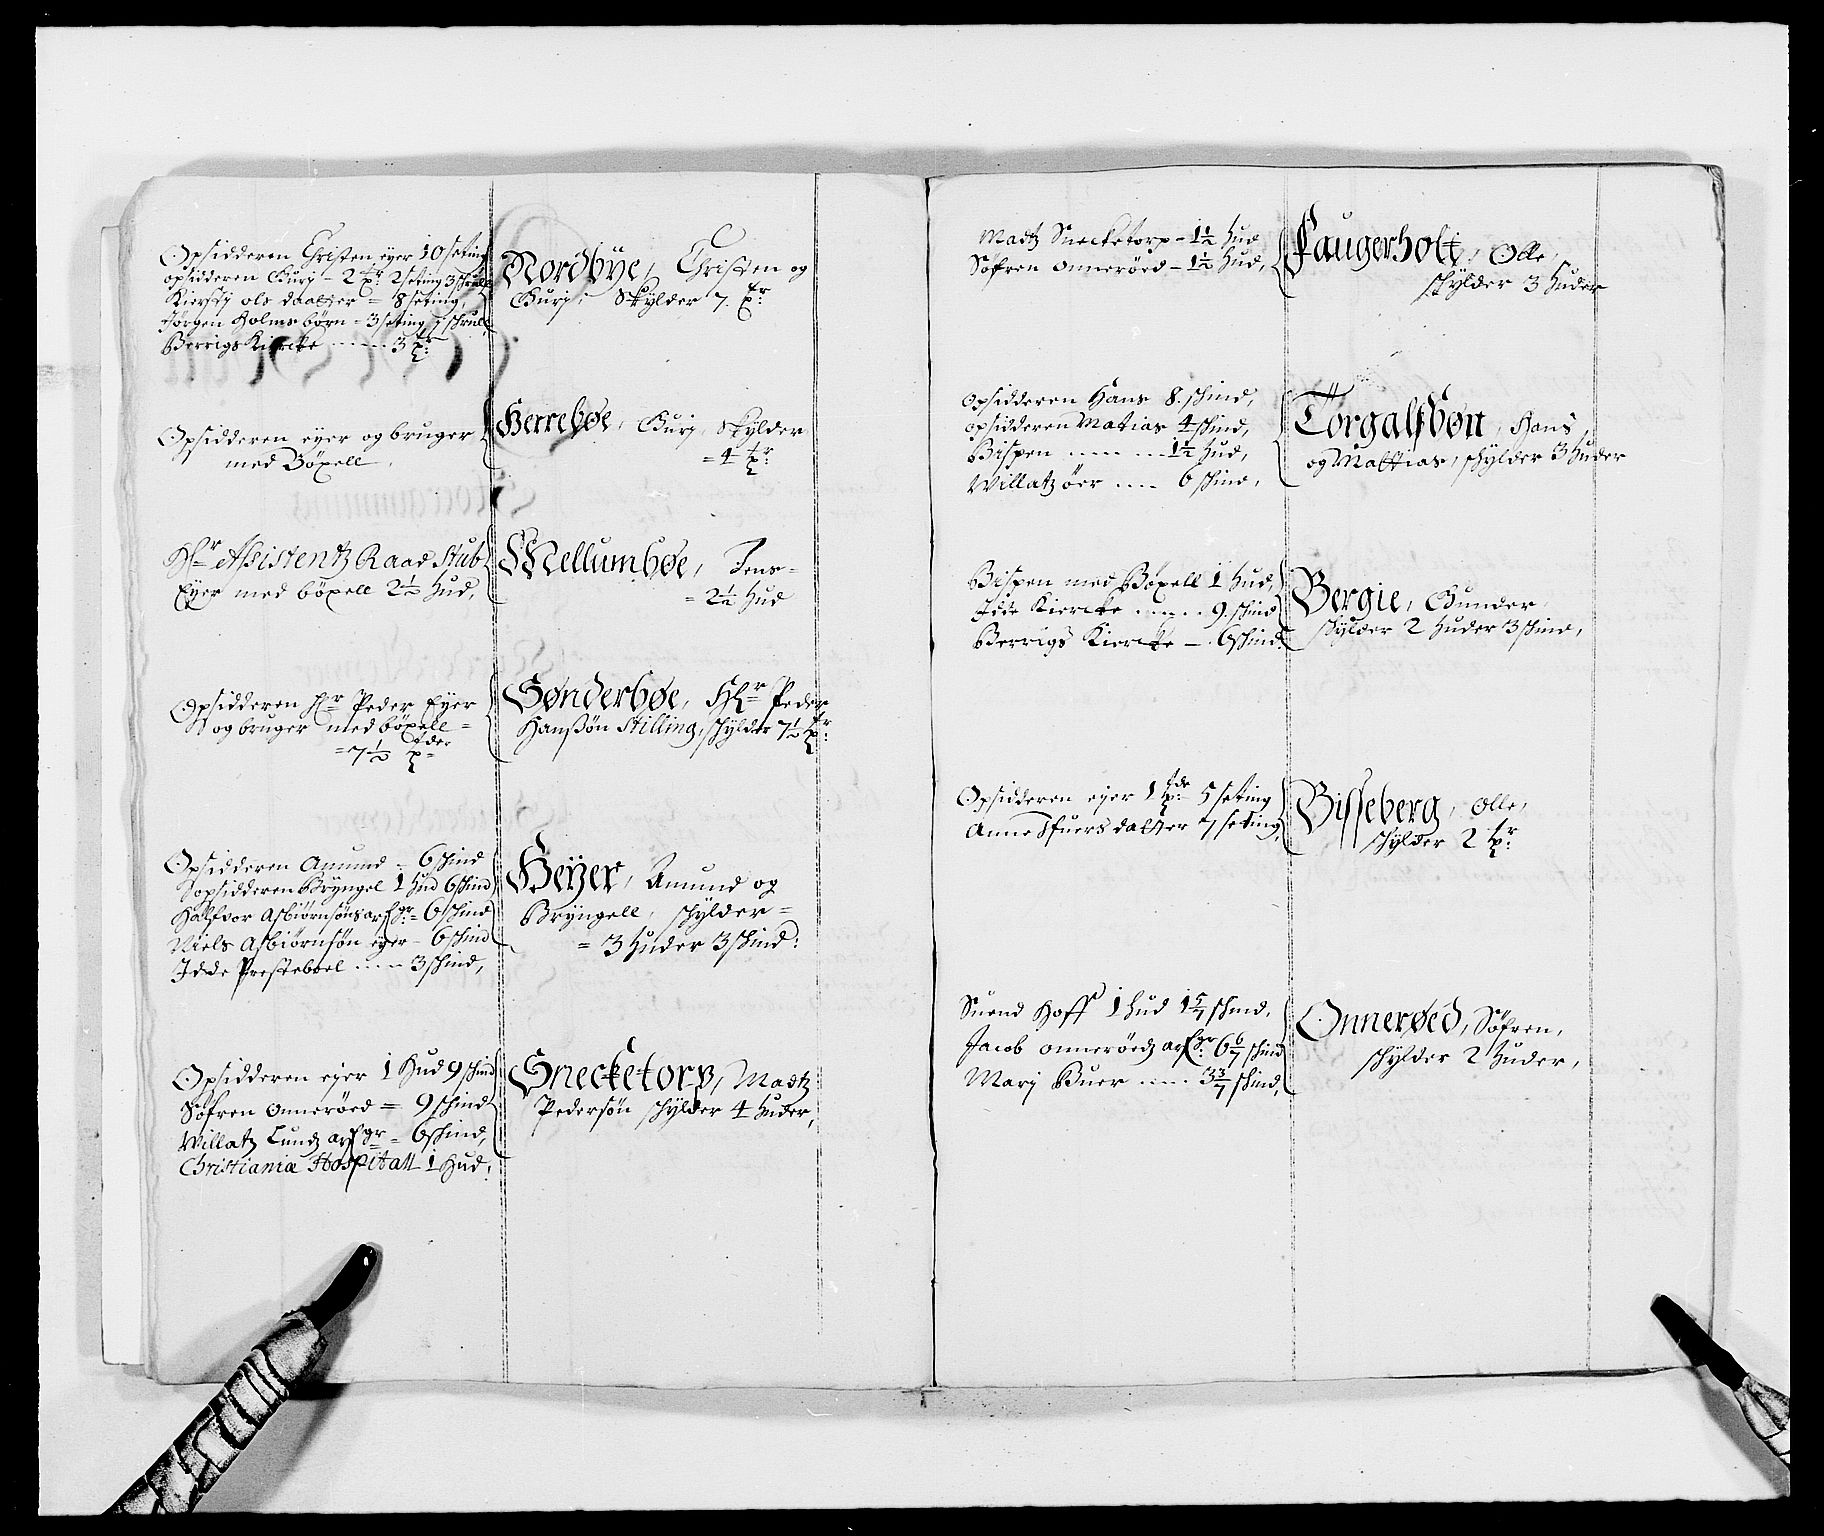 Opsidderen Christen eyer 10 seting
opsidderen Gurj – 2 tpr 2 seting 3 skrull
Kiersty ols daatter = 8 seting,
Jørgen Holms børn = 3 seting 7 skrull
Berrigs Kiercke ...... 3 tpr:
Nordbye, Christen og
Gurj: Skylder 7 tpr
Opsidderen eyer og bruger
med Böxell,
Herreböe, Gurj, Skylder
= 4 tpr:
Hr Assistentz Raad Stub
Eyer med böxell 2½ Hud,
Mellumböe, Jens =
= 2½ Hud
Opsidderen Hr Peder Eyer
og bruger med böxell =
= 7½ tpder
Sønderbøe, Hr Peder
Hanßøn Stilling, skylder 7½ tpr:
Opsidderen Amund – 6 skind
opsidderen Bryngel 1 Hud 6 skind
Halfvor Asbiørnsøns arfgr: = 6 skind
Niels Asbiørnsøn eyer – 6 skind
Idde Presteboel ...... 3 skind,
Heyer, Amund og
Bryngell, skylder =
= 3 Huder 3 skind:
Opsidderen ejer 1 Hud 9 skind
Søfren Onnerøed = 9 skind
Willatz Lundz arfgr = 6 skind,
Christianiæ Hospitall 1 Hud:
Snecketorp, Madtz
Pedersøn skylder 4 Huder,
Madtz Snecketorp – 1½ Hud
Søfren Onnerøed – 1½ Hud,
Faugerholt, Olle,
skylder 3 Huder
Opsidderen Hans 8. skind,
opsidderen Matias 4 skind,
Bispen ........ 1½ Hud,
Willatz öer .... 6 skind,
Torgalsbøn, Hans,
og Mattias, skylder 3 Huder
Bispen med Böxell 1 Hud,
Idde Kiercke ...... 9. skind
Berrigs Kiercke – . 6 skind:
Bergie, Gunder,
skylder 2 Huder 3 skind,
Opsidderen ejer 1 tpde 5 seting
Anne Ifuers datter 7 seting,
Bisseberg, Olle,
skylder 2 tpr:
Suend Hoff 1 hud 1 5/7 skind,
Jacob Onnerøedz arfgr: 6 6/7 skind
Marj Buer ..... 3 3/7 skind,
Onnerøed, Søfren,
skylder 2 Huder,